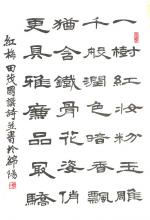 一樹紅妝粉玉雕
千般潤色暗香飄
猶含鐵骨花姿俏
更具雅廉品最驕
紅梅田茂國撰詩並書於綿陽